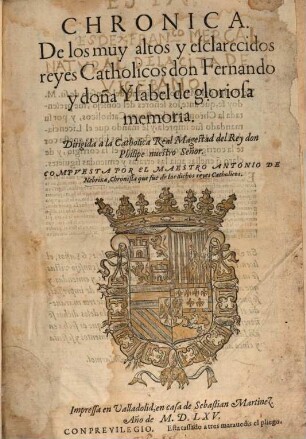 CHRONICA.
De los muy altos y esclarecidos
reyes Catholicos don Fernando
y doña Ysabel de gloriosa
memoria.
Dirigida a la Catholica Real Magestad del Rey don
Philipe nuestro Señor.
COMPVESTA POR EL MAESTRO ANTONIO DE
Nebrixa, Chronista que fue de los dichos reyes Catholicos.
Impressa en Valladolid, en casa de Sebastian Martinez
Año de M. D. LXV.
CON PREVILEGIO. Esta tassado a tres marauedis el pliego.